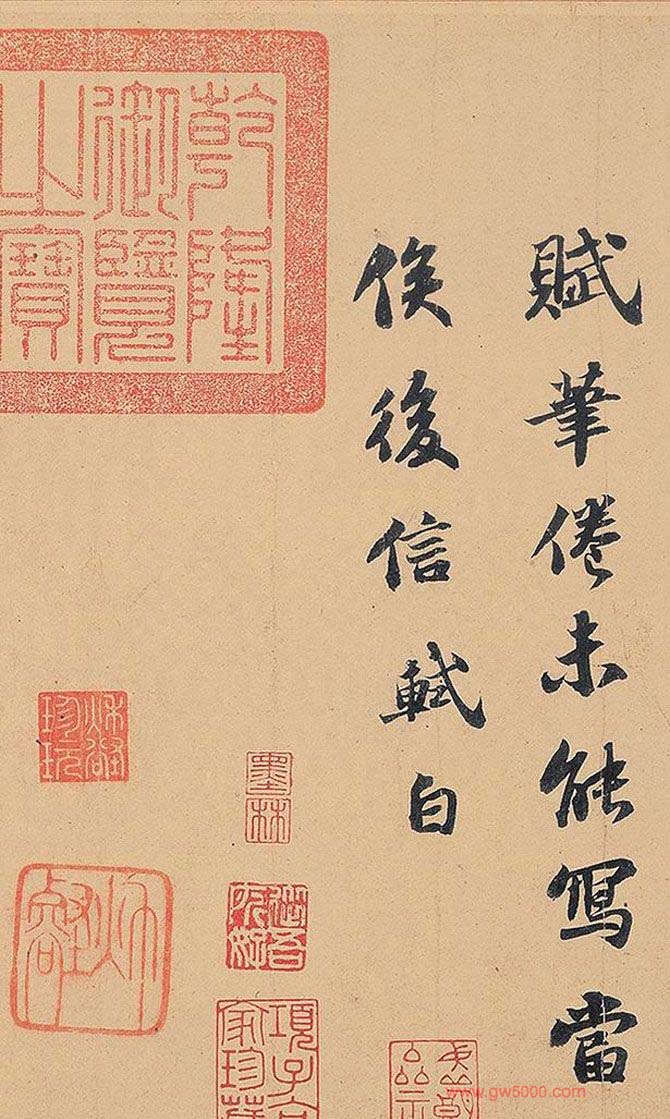 賦筆倦未能寫當
俟後信軾白
乾隆
御覽
之寶
墨林
項子京
家珍藏
www.gw5000.com